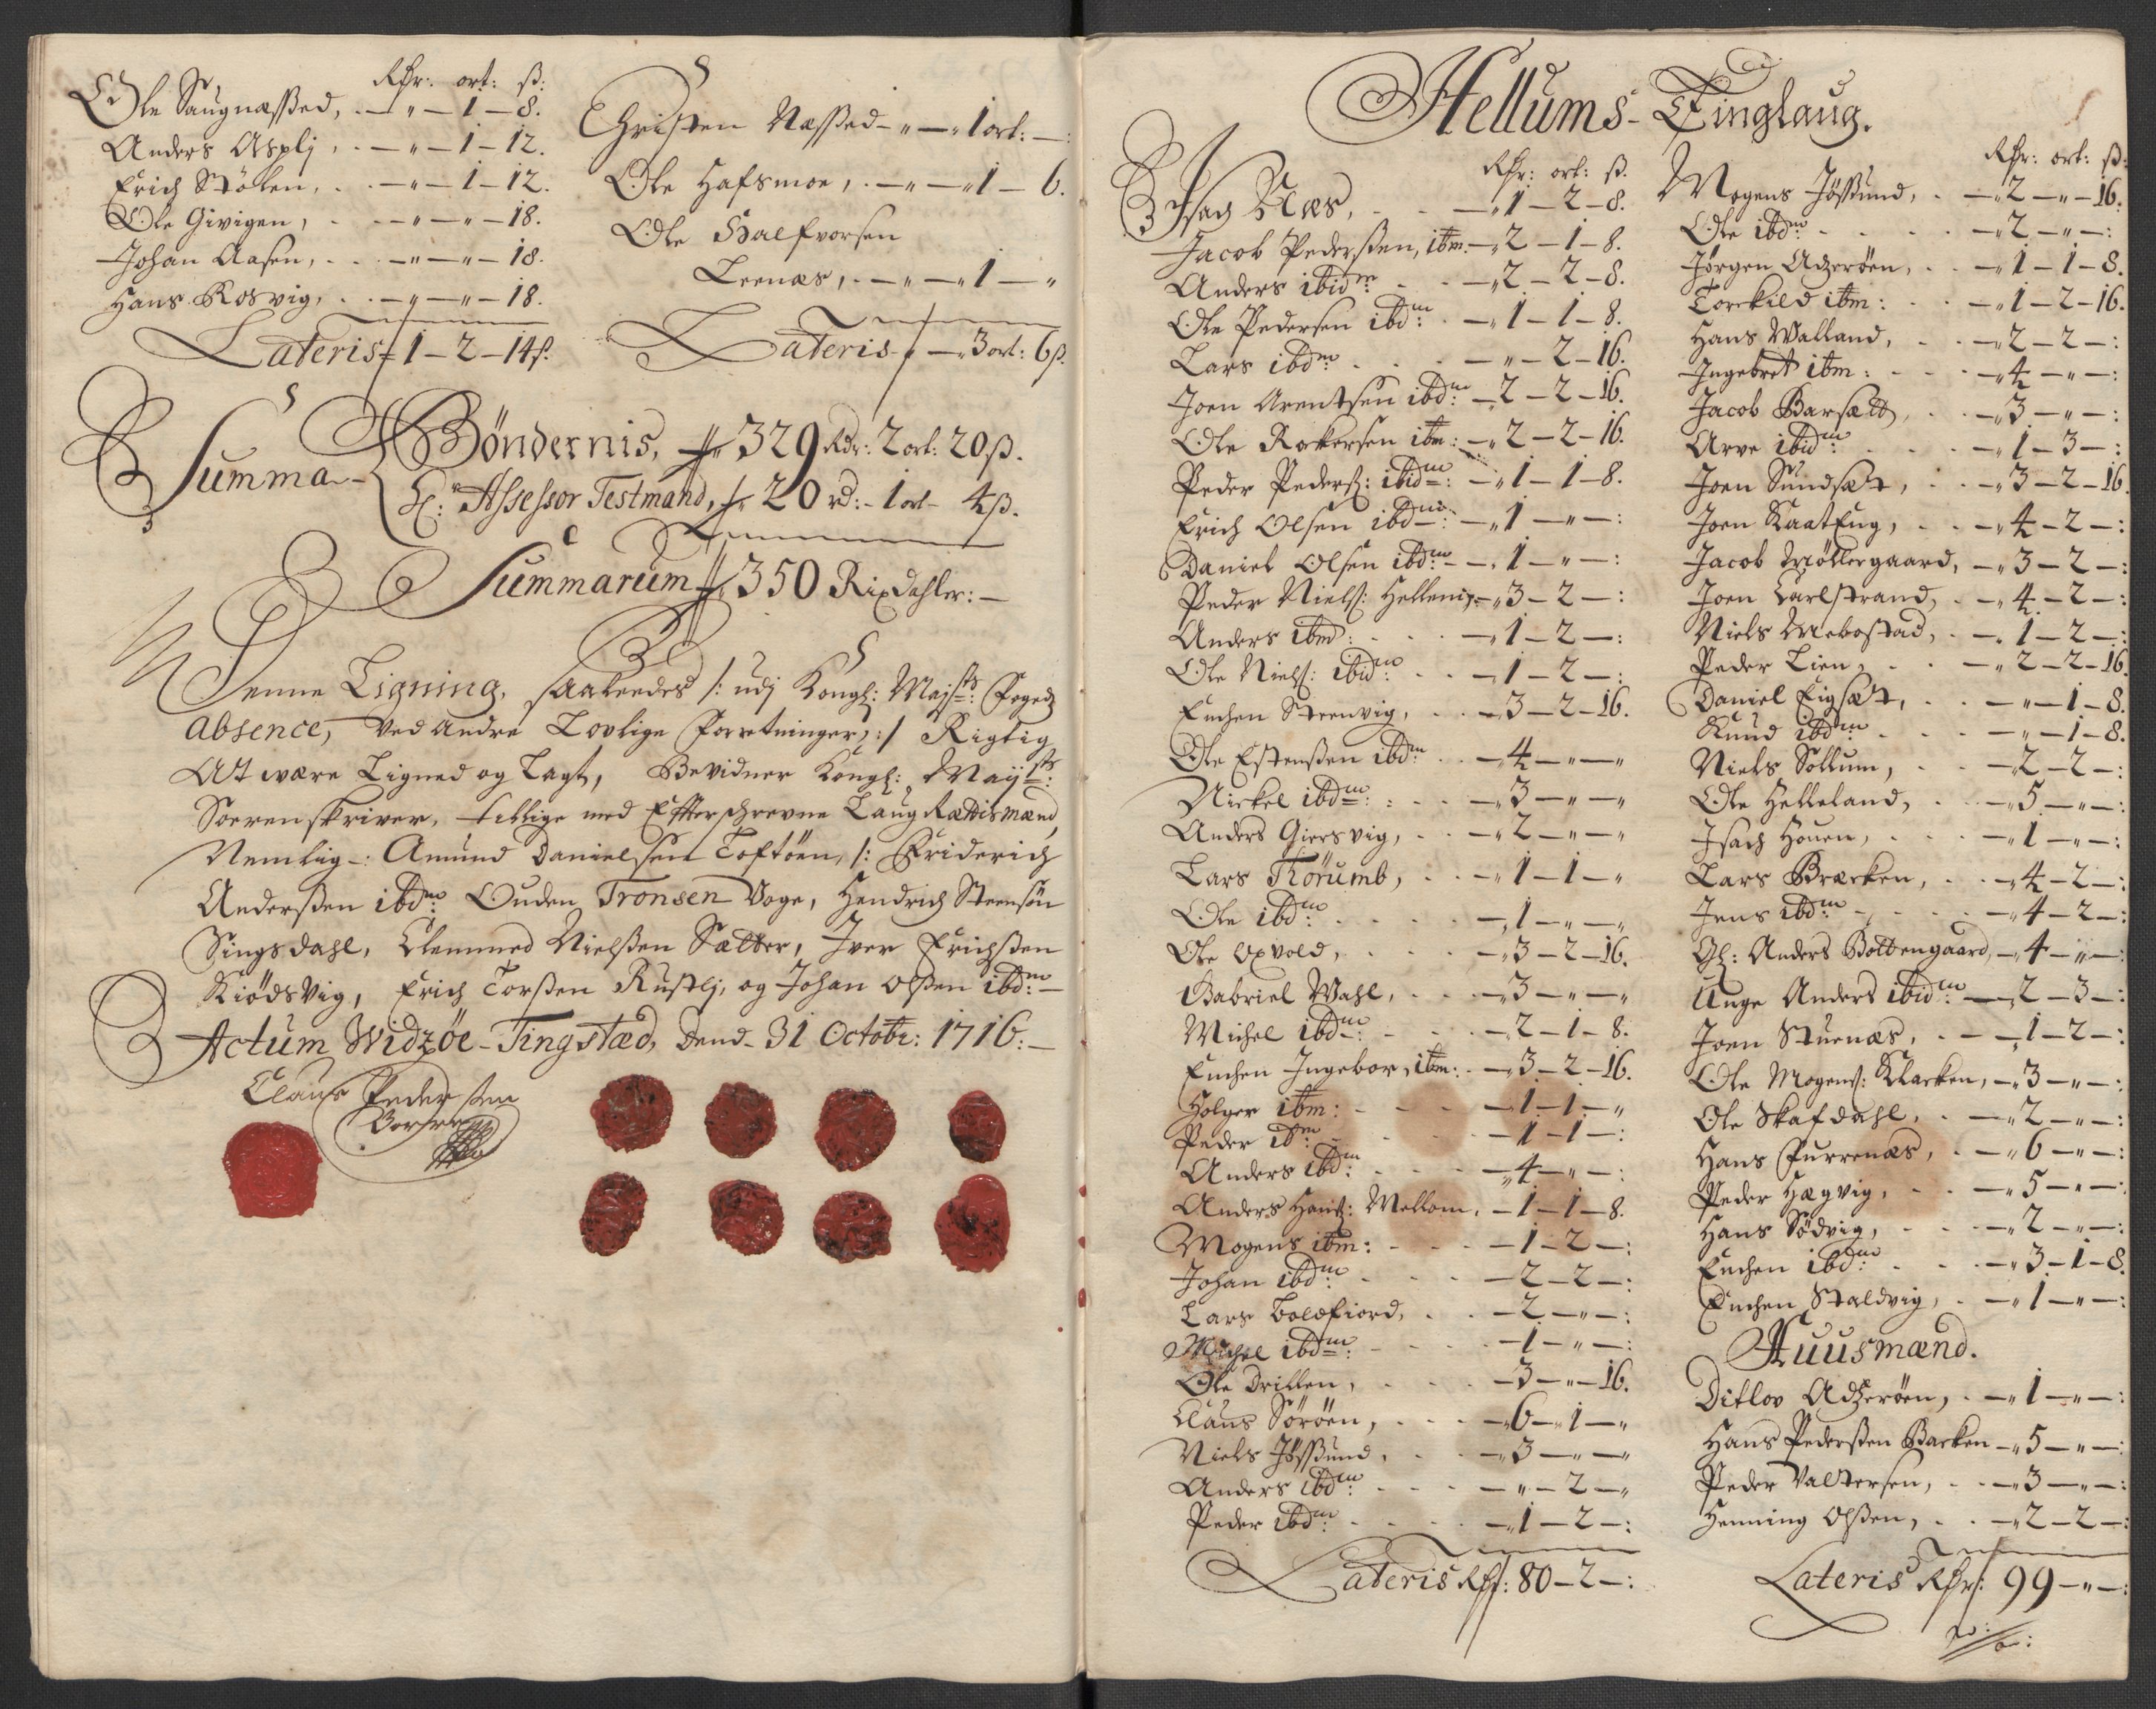 Rdr: ort: ß:
Ole Saugnæssed, . — " — 1 — 8.
Anders Asplj, . — " — 1 — 12.
Erich Stølen, . . — " — 1 — 12.
Ole Givigen, . — " — " — 18.
Johan Aasen, . . — " — " — 18.
Hans Kosvig, . . — " — " — 18.
Lateris 1 — 2 — 14ß.
Christen Næssed — " — 1 ort: — :
Ole Hafsmoe, . — " — 1 — 6.
Ole Halfvorsen
Leenæs, . — " — 1 — "
Lateris — " 3 ort: 6ß.
Summa —
Bøndernis, 329 Rdr: 2 ort: 20ß.
Hr: Assessor Testmand, 20 rd: — 1 ort — 4ß.
Summarum 350 Rixdahler: —
Denne Ligning, saaleedes /: udj Kongl: Majsts: Foged
absence, ved andre Lovlige Forretninger, :/ Rigtig
At være Ligned og Lagt, Bevidner Kongl: Mayts:
Sorenskriver, tillige med Effterschrevne LaugRættismænd,
Nemlig —: Amund Danielsen Toftøen, /: Friderich
Anderssen ibdm: Ouden Tronsen Voge, Hendrich Steensøn
Singsdahl, Clemmed Nielssen Sætter, Iver Erichssen
Kiødsvig, Erich Torssen Rustlj, og Johan Olssen ibdm: —
Actum Widzøe-Tingstæd, Dend 31 Octobr: 1716: —
Claus Pedersen
Hellums- Tinglaug.
Rdr: ort: ß.
Isach Næs, . . — 1 — 2 — 8.
Jacob Pederssen, ibm — 2 — 1 — 8.
Anders ibidm: . — 2 — 2 — 8.
Ole Pedersen ibdm: . — 1 — 1 — 8.
Lars ibdm: . . . — " — 2 — 16.
Joen Arentsen ibdm: — 2 — 2 — 16.
Ole Rokersen ibm: — 2 — 2 — 16.
Peder Peders: ibidm: — 1 — 1 — 8.
Erich Olsen ibdm: — 1 — " — :
Daniel Olsen ibdm: — 1 — " — :
Peder Niels: Hellem, — 3 — 2 — :
Anders ibm: . . . — 1 — 2 — :
Ole Niels: ibidm: . . — 1 — 2 — :
Enchen Steenvig, . . — 3 — 2 — 16.
Ole Estenssen ibdm: . . — 4 — " — "
Nickel ibdm: : . . — 3 — " — "
Anders Giersvig, . . — 2 — " — "
Lars Thørumb, . . — 1 — 1 — "
Ole ibdm: . . . . — 1 — " — "
Ole Oxvold, . . . — 3 — 2 — 16.
Gabriel Wahl, . . . — 3 — " — "
Michel ibdm: . . . — 2 — 1 — 8.
Enchen Ingebor, ibm: . — 3 — 2 — 16.
Holger ibm: . . . — 1 — 1 — "
Peder ibm: . . . . — 1 — 1 — :
Anders ibdm: . . . — 4 — " — :
Anders Hans: Mellom, — 1 — 1 — 8.
Mogens ibm: . . . — 1 — 2 — :
Johan ibdm: . . . — 2 — 2 — :
Lars Toldfiord, . . — 2 — " — :
Michel ibdm: . . . — 1 — " — :
Ole Drillen, . . . — 3 — " — 16.
Claus Sørøen, . . . — 6 — 1 — "
Niels Jøssund, . . — 3 — " — "
Anders ibdm: . . . — " — 2 — "
Peder ibdm: . . . — 1 — 2 — :
Lateris Rdr: 80 — 2 — :
Rdr: ort: ß:
Mogens Jøssund, . — 2 — " — 16.
Ole ibdm: . . . . — 2 — " — :
Jørgen Adzerøen, . . — 1 — 1 — 8.
Torckild ibm: . . — 1 — 2 — 16.
Hans Walland, . . — 2 — 2 — :
Ingebret ibm: . . . — 4 — " — :
Jacob Barsætt, . . — 3 — " — :
Arve ibidm: . . . — 1 — 3 — :
Joen Sundsæt, . . — 3 — 2 — 16
Joen Kaateng, . . — 4 — 2 — :
Jacob Møllergaard, — 3 — 2 — :
Joen Carlstrand, . — 4 — 2 — :
Niels Mebostad, . — 1 — 2 — :
Peder Lien, . . . — 2 — 2 — 16
Daniel Eigsæt, . . — " — 1 — 8.
Knud ibdm: . . . — " — 1 — 8.
Niels Sollum, . . — 2 — 2 — :
Ole Helleland, . . — 5 — " — :
Isach Houen, . . . — 1 — " — :
Lars Bræcken, . . — 4 — 2 — :
Jens ibdm: . . . — 4 — 2 — :
Gl: Anders Bottengaard, — 4 — " — :
Unge Anders ibidm: — 2 — 3 — :
Joen Stuenæs, . . — 1 — 2 — :
Ole Mogens: Klacken, — 3 — " — :
Ole Skafdahl, . . — 2 — " — :
Hans Furrenæs, . — 6 — " — :
Peder Hægvig, . . — 5 — " — :
Hans Sødvig, . . — 2 — " — :
Enchen ibdm: . . . — 3 — 1 — 8.
Enchen Staldvig, . — 1 — " — :
Huusmænd.
Ditlov Adzerøen, . — 1 — " — :
Hans Pederssen Backen — 5 — " — :
Peder Valtersen, . . — 3 — " — :
Henning Olssen, . . — 2 — 2 — :
Lateris Rdr: 99 — " — :